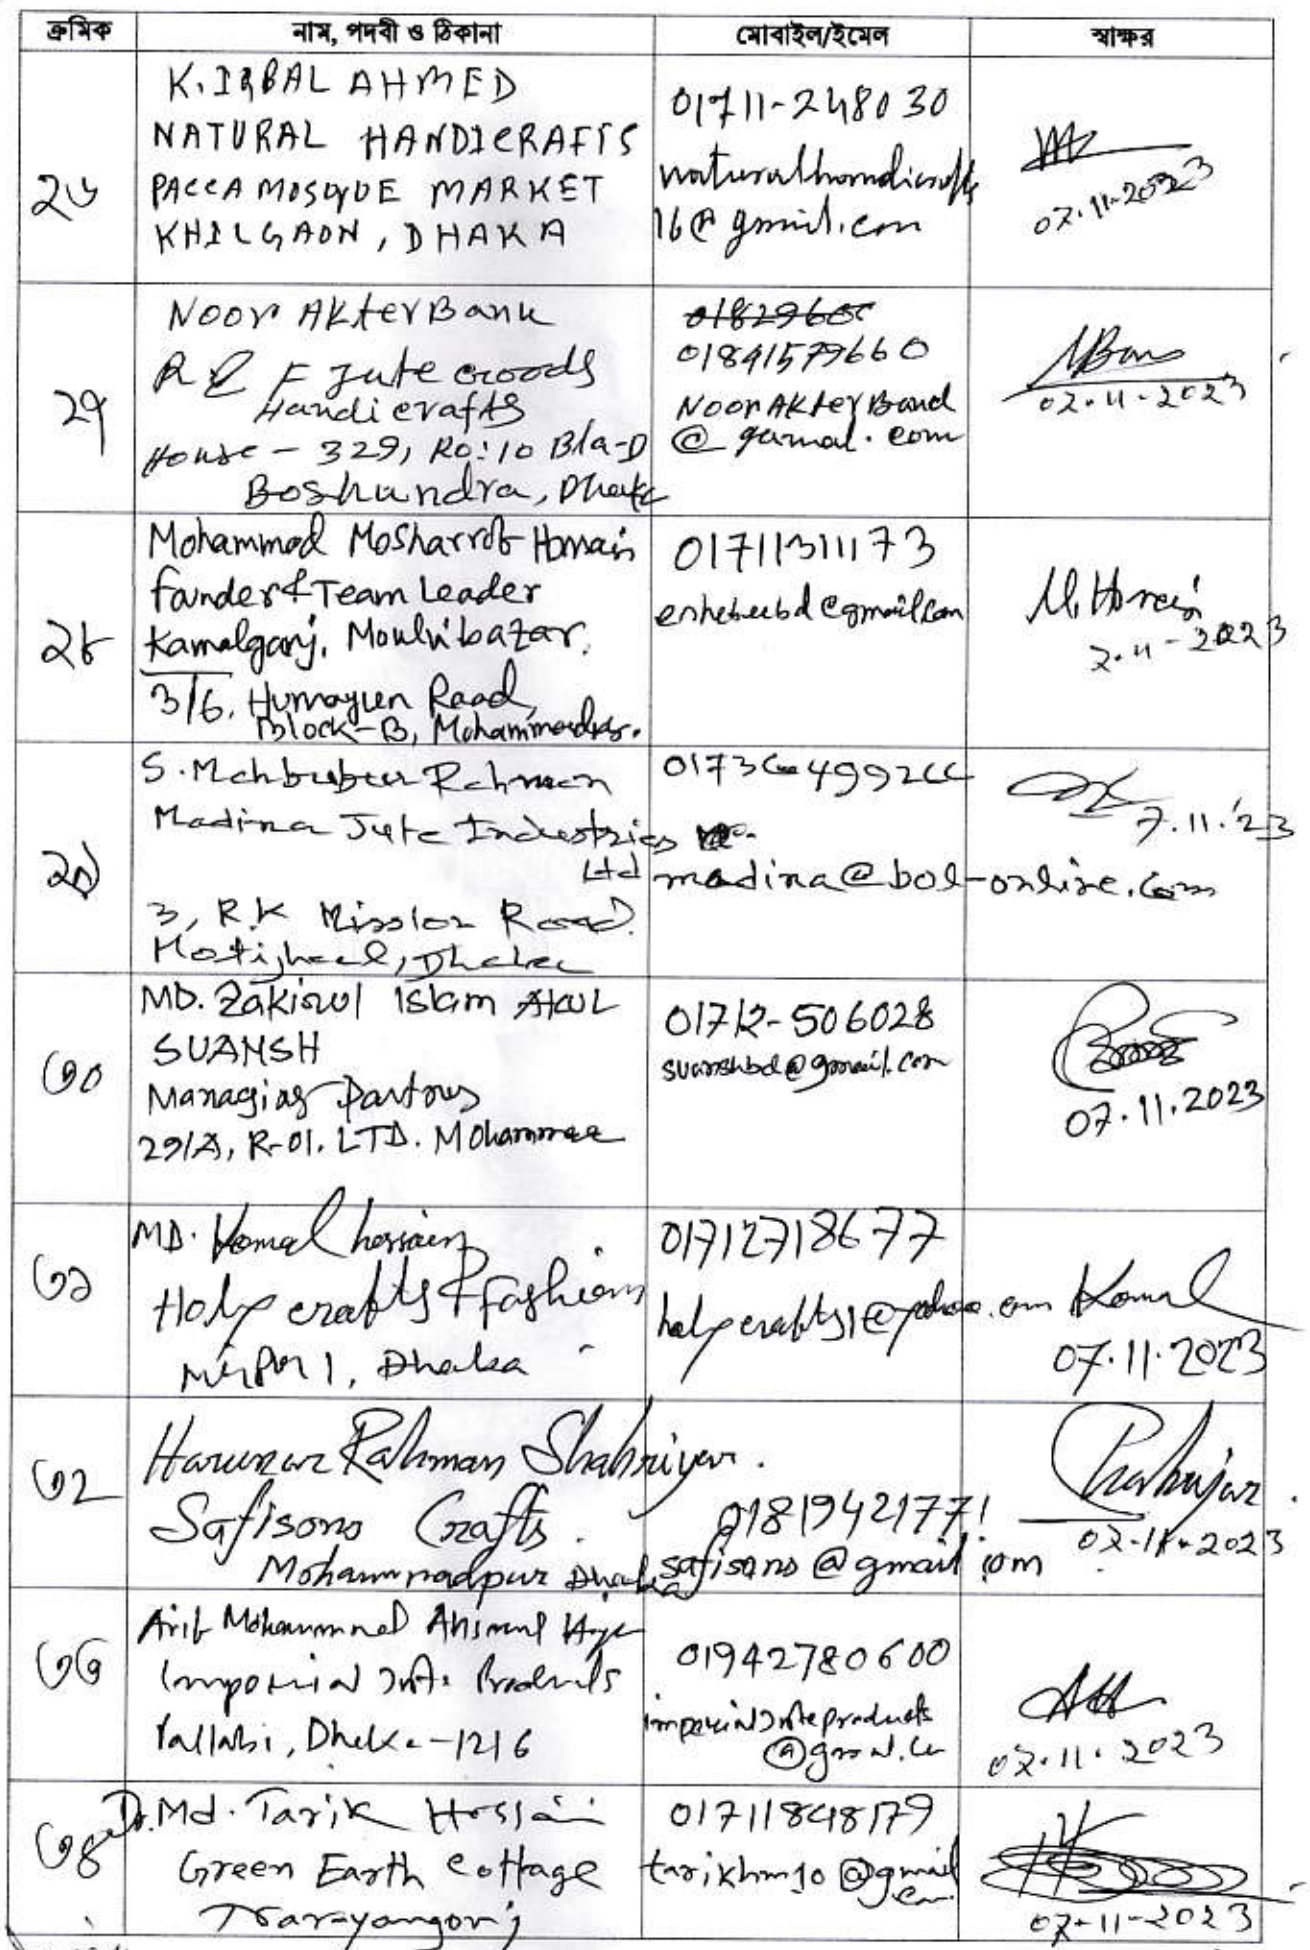 ক্রমিক নাম, পদবী ও ঠিকানা মোবাইল/ইমেল স্বাক্ষর
২৬
K. IQBAL AHMED
NATURAL HANDICRAFTS
PACCA MOSQUE MARKET
KHILGAON, DHAKA
01711-248030
naturalhandicrafts
16@gmail.com
07.11.2023
২৭
Noor Akter Banu
Jute Goods
Handicrafts
House - 329, Ro: 10 Bla-D
Boshundra, Dhaka
01841579660
Noor Akter Band
@ gamal. com
07.11.2023
২৮
Mohammad Mosharrof Hossain
founder & Team Leader
Kamalganj, Moulvibazar.
3/6, Humayun Road,
Block-B, Mohammadpur.
01711311173
@gmail.com
M. Hossain
7.11-2023
২৯
S. Mahbubur Rahman
Madina Jute Industries
Ltd
3, R.K Mission Road.
Motijheel, Dhaka
madina@bol-online.com
7.11.'23
৩০
MD. Zakirul Islam Akul
SUANSH
Managing Partner
29/A, R-01. LTD. Mohammad
01712-506028
suanshbd@gmail.com
07.11.2023
৩১
MD. Komal hossain
Holy crafts & fashion
Mirpur 1, Dhaka
01712718677
holycrafts1@yahoo.com
Komal
07.11.2023
৩২
Harunar Rahman Shahriyar.
Safisons Crafts.
Mohammadpur Dhaka
01819421771
safisons@gmail.com
Shahriyar.
07.11.2023
৩৩
Arif Mohammad Ahsanul Haque
Imperial Jute Products
Pallabi, Dhaka-1216
01942780600
imperialjuteproducts
@gmail.com
07.11.2023
৩৪
Dr. Md. Tarik Hossain
Green Earth Cottage
Narayangonj
01711848179
tarikhm10@gmail
com
07-11-2023